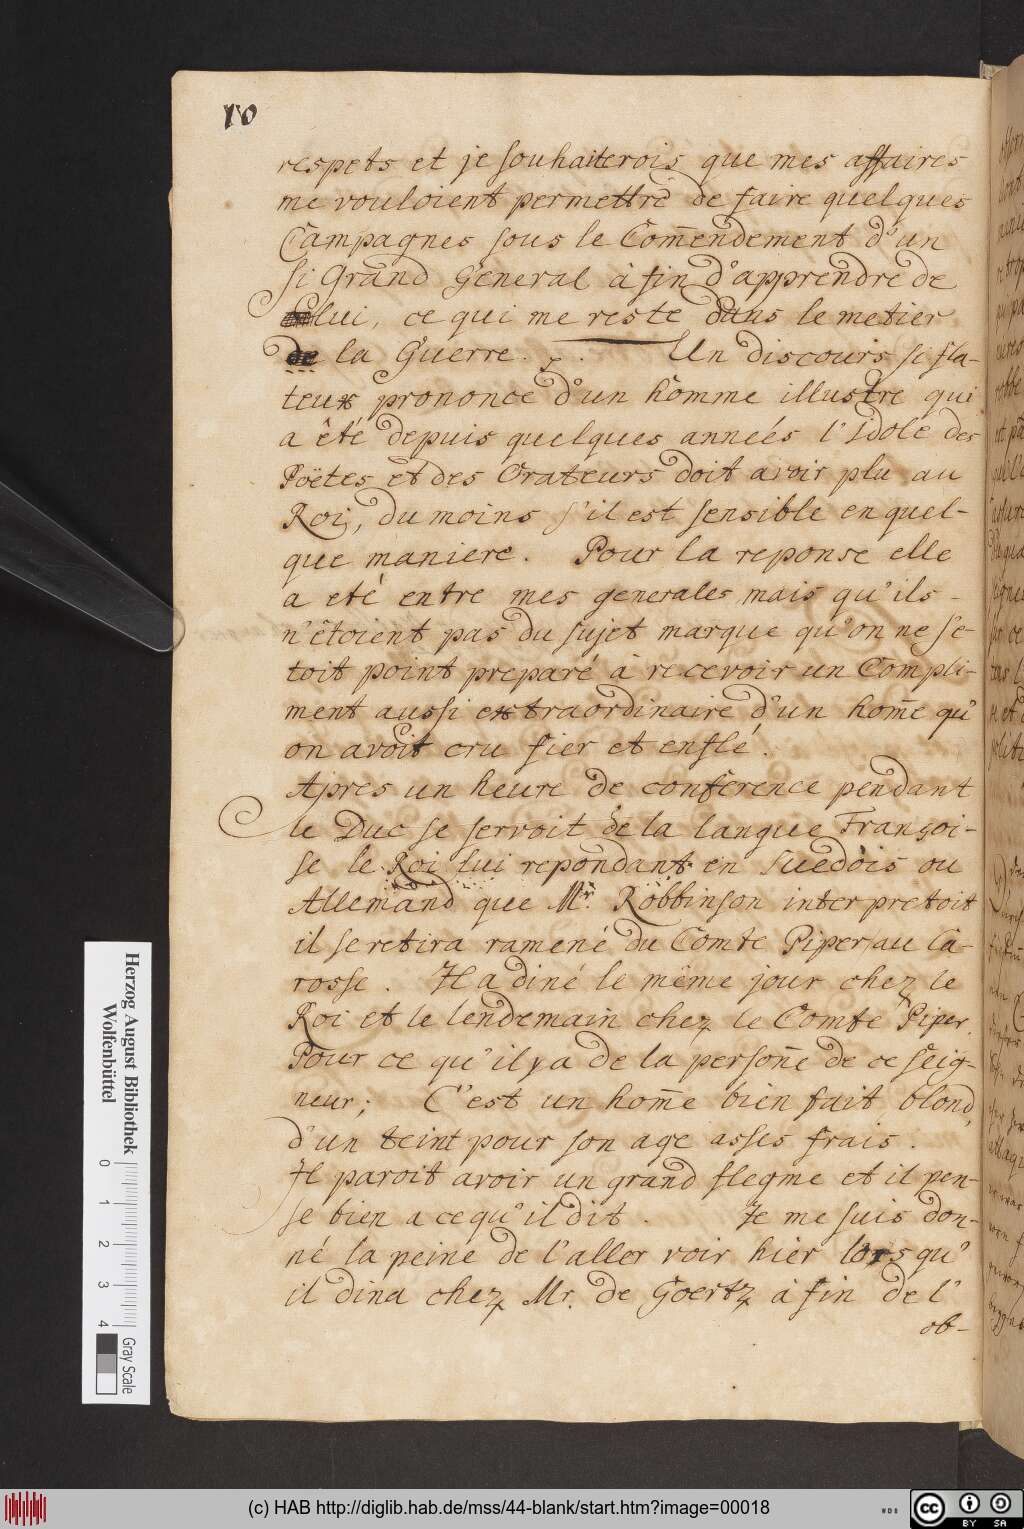 10
respets et je souhaiterois que mes affaires
me vouloient permettre de faire quelques
Campagnes sous le Com̄endement d'un
si Grand General à fin d'apprendre de
lui, ce qui me reste dans le metier
de la Guerre. Un discours si fla-
teux prononcé d'un homme illustre qui
a êté depuis quelques années l'Idole des
Poëtes et des Orateurs doit avoir plu au
Roi, du moins s'il est sensible en quel-
que maniere. Pour la reponse elle
a eté entre mes generales, mais qu'ils
n'êtoient pas du sujet marque qu'on ne s'e-
toit point preparé à recevoir un Compli-
ment aussi extraordinaire d'un hom̄e qu'
on avoit cru fier et enflé.
Apres un heure de conference pendant
le Duc se servoit de la langue Françoi-
se le Roi lui repondant en Suedois ou
Allemand que Mr. Robbinson interpretoit
il se retira ramené du Comte Piper, au Ca-
rosse. Il a diné le même jour chez le
Roi et le lendemain chez le Comte Piper.
Pour ce qu'il y a de la person̄e de ce seig-
neur; C'est un hom̄e bien fait, blond,
d'un teint pour son age asses frais.
Il paroit avoir un grand flegme et il pen-
se bien a ce qu'il dit. Je me suis don-
né la peine de l'aller voir hier lors qu'
il dina chez Mr. de Goertz à fin de l'
ob-
Herzog August Bibliothek
Wolfenbüttel
0 1 2 3 4
Gray Scale
(c) HAB http://diglib.hab.de/mss/44-blank/start.htm?image=00018
WDB
cc BY SA